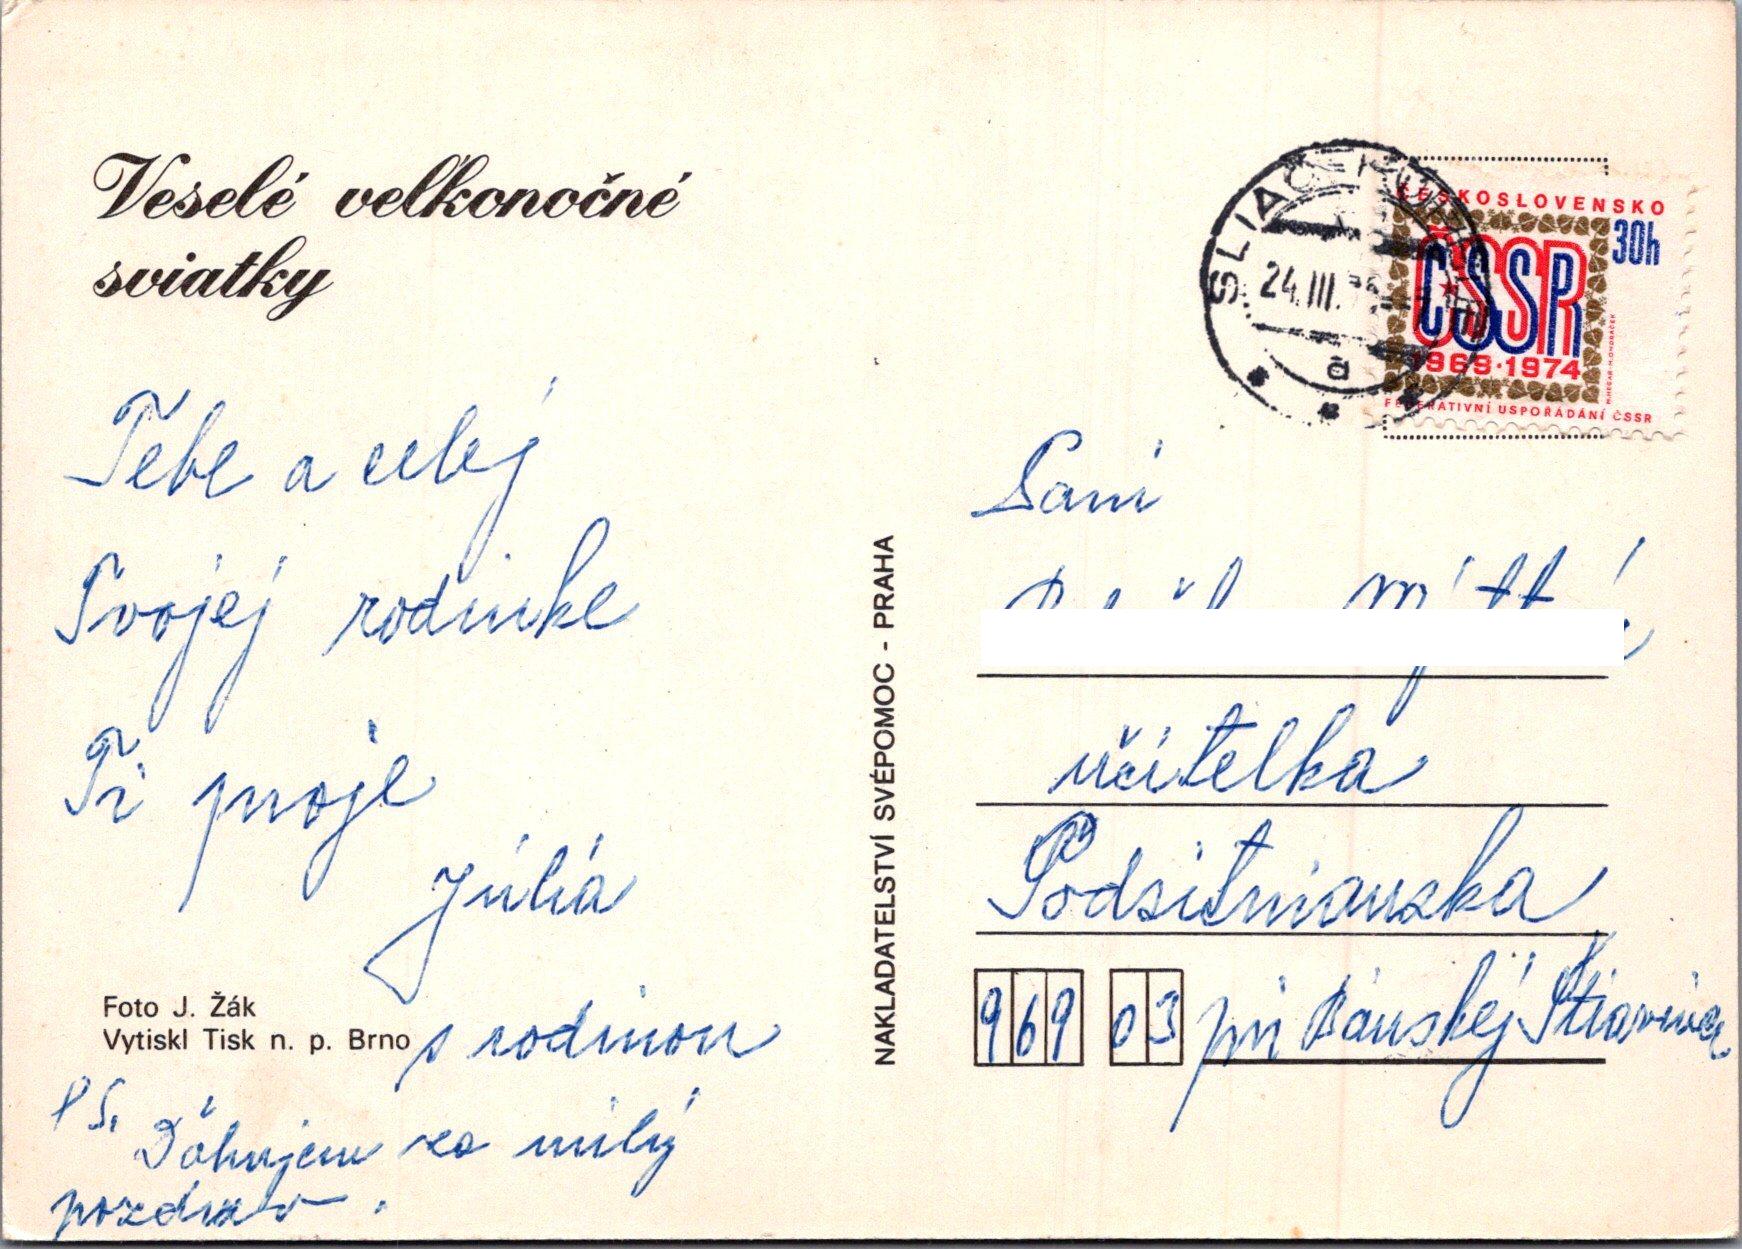 Veselé veľkonočné
sviatky
Tebe a celej
Tvojej rodinke
Ti praje
Júlia
s rodinou
PS. Ďakujem za milý
pozdrav.
Foto J. Žák
Vytiskl Tisk n. p. Brno
NAKLADATELSTVÍ SVÉPOMOC - PRAHA
SLIAČ-KÚPELE
24.III.
a
ČESKOSLOVENSKO
30h
ČSSR
1969·1974
FEDERATIVNÍ USPOŘÁDÁNÍ ČSSR
Pani
učitelka
Podsitnianska
969 03 pri Banskej Štiavnici